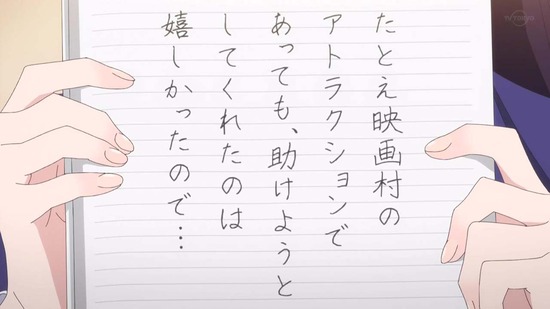 たとえ映画村の
アトラクションで
あっても、助けようと
してくれたのは
嬉しかったので…
TV TOKYO